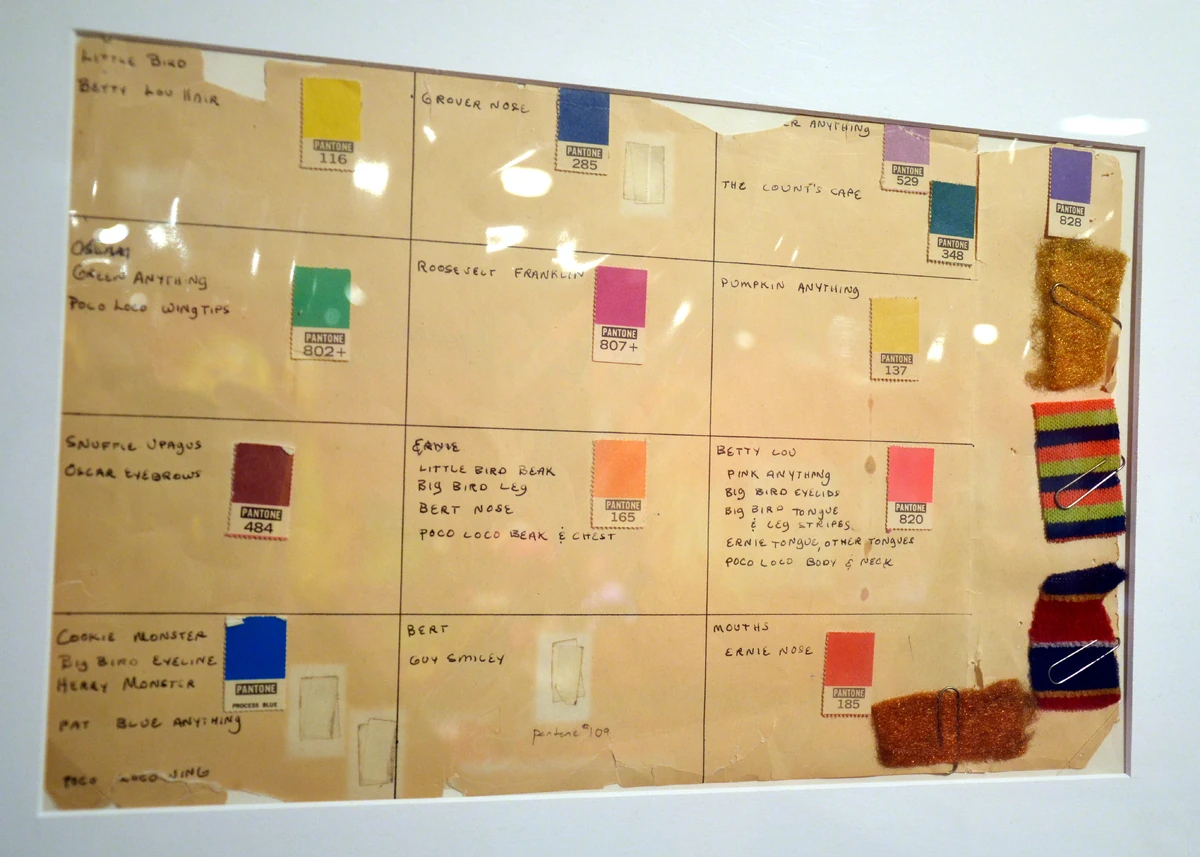 LITTLE BIRD
BETTY LOU HAIR
PANTONE
116
GROVER NOSE
PANTONE
285
ANYTHING
PANTONE
529
THE COUNT'S CAPE
PANTONE
348
PANTONE
828
OSCAR
GREEN ANYTHING
POCO LOCO WINGTIPS
PANTONE
802+
ROOSEVELT FRANKLIN
PANTONE
807+
PUMPKIN ANYTHING
PANTONE
137
SNUFFLE UPAGUS
OSCAR EYEBROWS
PANTONE
484
ERNIE
LITTLE BIRD BEAK
BIG BIRD LEG
BERT NOSE
POCO LOCO BEAK & CHEST
PANTONE
165
BETTY LOU
PINK ANYTHING
BIG BIRD EYELIDS
BIG BIRD TONGUE
& LEG STRIPES
ERNIE TONGUE, OTHER TONGUES
POCO LOCO BODY & NECK
PANTONE
820
COOKIE MONSTER
BIG BIRD EYELINE
HERRY MONSTER
FAT BLUE ANYTHING
POCO LOCO WING
PANTONE
PROCESS BLUE
BERT
GUY SMILEY
pantone #109
MOUTHS
ERNIE NOSE
PANTONE
185